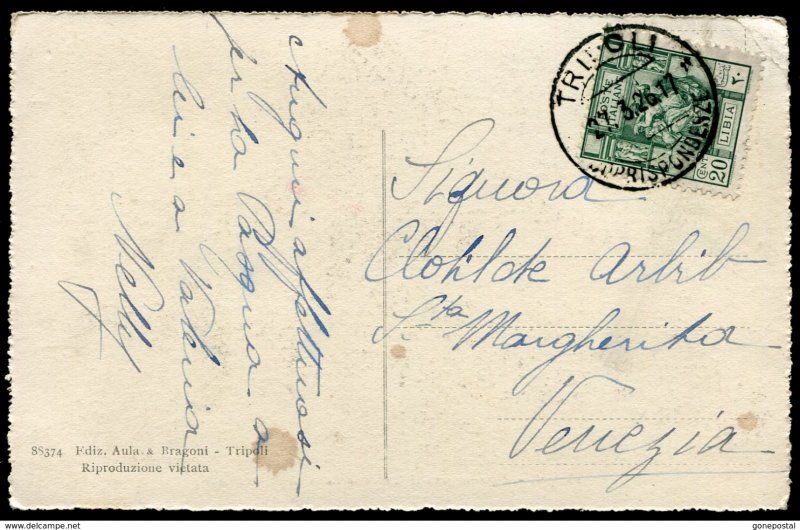 Auguri affettuosi
per la Pasqua a
lei e a Valeria
Nelly
TRIPOLI
21.3.26.17 *
CORRISPONDENZE
POSTE
ITALIANE
LIBIA
٢٠
CENT 20
Signora
Clotilde Arbib
Sta Margherita
Venezia
88374 Ediz. Aula & Bragoni - Tripoli
Riproduzione vietata
delcampe.net
gonepostal